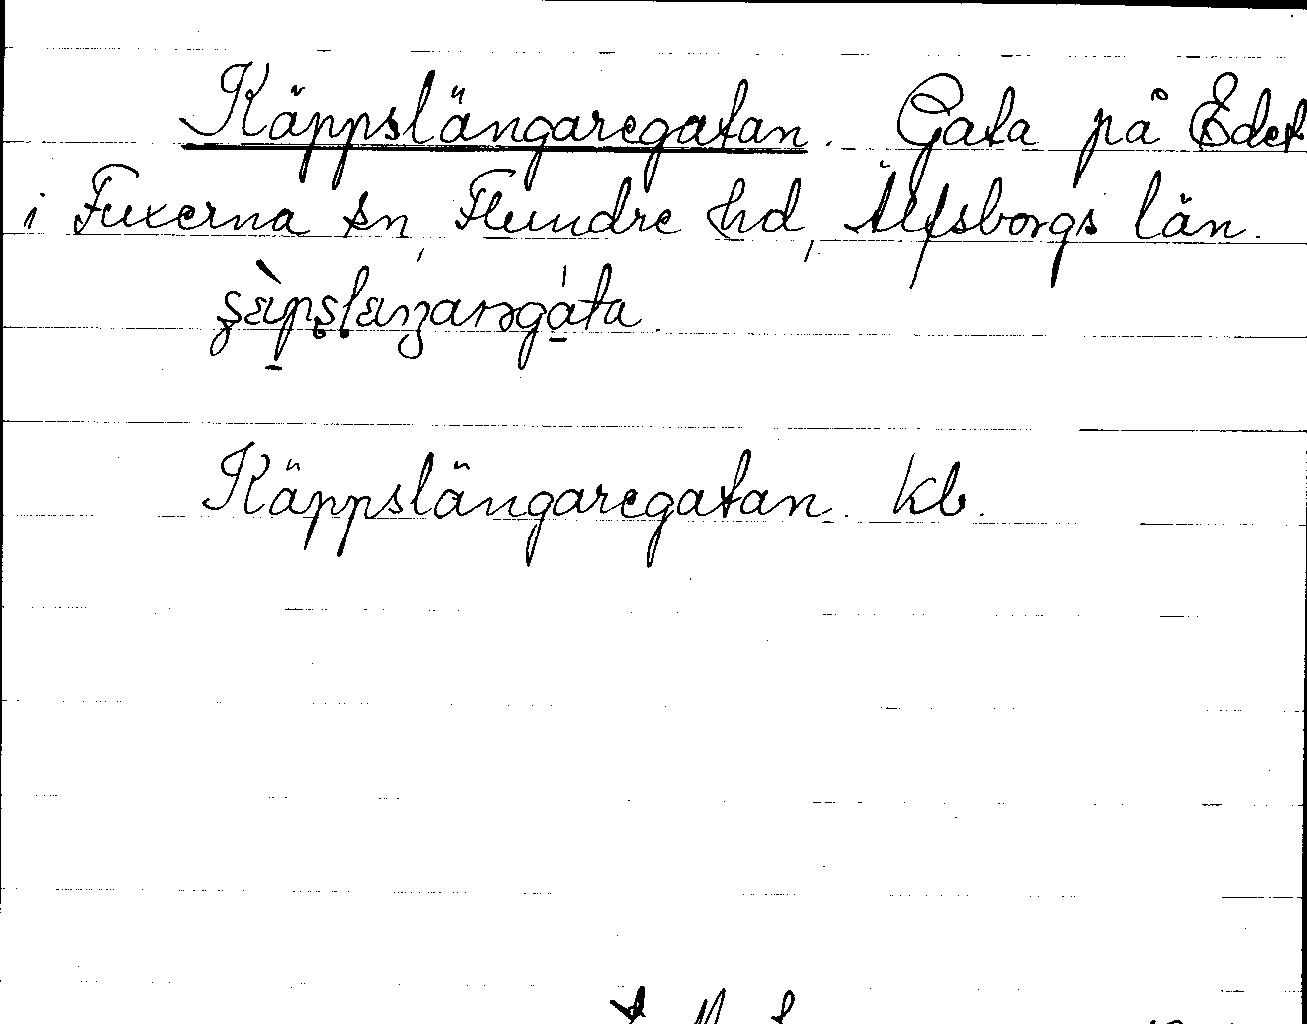 Käppslängaregatan. Gata på Edet
i Fuxerna sn, Flundre hd, Älfsborgs län.
Käppslängaregatan. Kb.